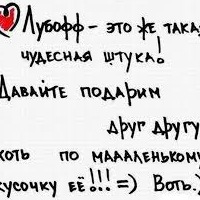 Лубофф - это же така
чудесная штука!
Давайте подарим
друг другу
хоть по мааленькому
кусочку её!!! =) Воть.)